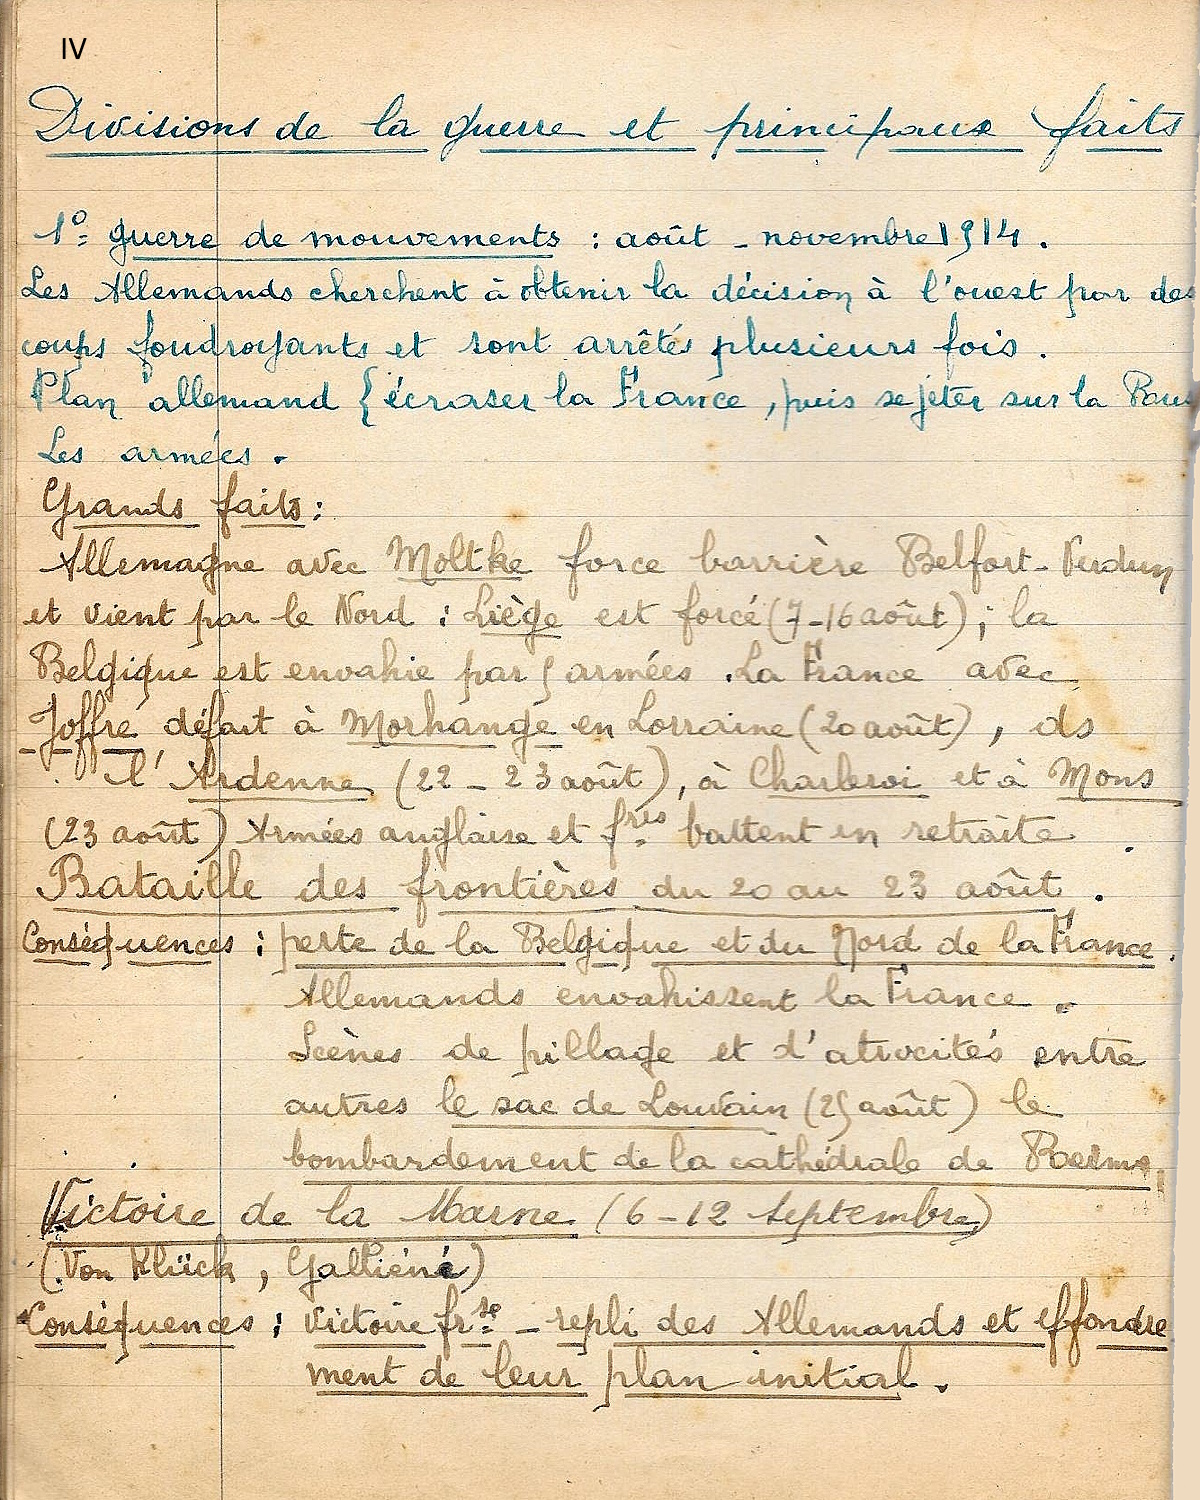 IV
Divisions de la guerre et principaux faits
1º guerre de mouvements : août - novembre 1914.
Les Allemands cherchent à obtenir la décision à l'ouest par des
coups foudroyants et sont arrêtés plusieurs fois.
Plan allemand { écraser la France, puis se jeter sur la
Les armées.
Grands faits :
Allemagne avec Moltke force barrière Belfort-Verdun
et vient par le Nord : Liège est forcé (7-16 août) ; la
Belgique est envahie par 5 armées. La France avec
Joffre défait à Morhange en Lorraine (20 août), ds
l'Ardenne (22 - 23 août), à Charleroi et à Mons
(23 août) Armées anglaise et frses battent en retraite.
Bataille des frontières du 20 au 23 août.
Conséquences : perte de la Belgique et du Nord de la France.
Allemands envahissent la France.
Scènes de pillage et d'atrocités entre
autres le sac de Louvain (25 août) le
bombardement de la cathédrale de
Victoire de la Marne (6-12 septembre)
(Von Klück, Galliéni)
Conséquences : victoire frse - repli des Allemands et effondre
ment de leur plan initial.